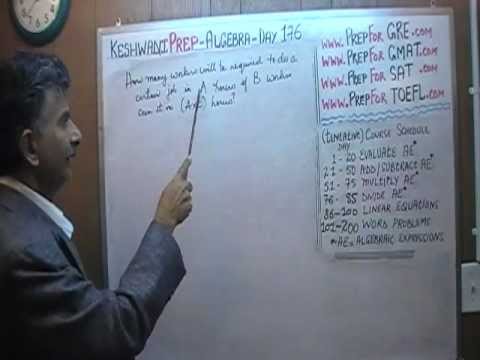 KESHWANI PREP-ALGEBRA-DAY 176
How many workers will be required to do a
certain job in A hours if B workers
can it in (A+ ) hours?
www.PREPFOR GRE.COM
www.PREPFOR GMAT.COM
www.PREPFOR SAT.COM
www.PREPFOR TOEFL.COM
(TENTATIVE) COURSE SCHEDULE
DAY
1-20 EVALUATE AE*
21-50 ADD/SUBTRACT AE*
51-75 MULTIPLY AE*
76-85 DIVIDE AE*
86-100 LINEAR EQUATIONS
101-200 WORD PROBLEMS
*AE=ALGEBRAIC EXPRESSIONS